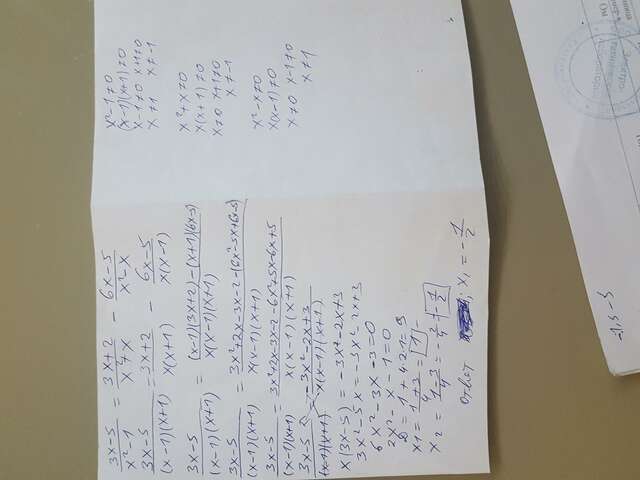 3x-5/x²-1 = 3x+2/x²+x - 6x-5/x²-x
3x-5/(x-1)(x+1) = 3x+2/x(x+1) - 6x-5/x(x-1)
3x-5/(x-1)(x+1) = (x-1)(3x+2)-(x+1)(6x-5)/x(x-1)(x+1)
3x-5/(x-1)(x+1) = 3x²+2x-3x-2-(6x²-5x+6x-5)/x(x-1)(x+1)
3x-5/(x-1)(x+1) = 3x²+2x-3x-2-6x²+5x-6x+5/x(x-1)(x+1)
3x-5/(x-1)(x+1) = -3x²-2x+3/x(x-1)(x+1)
x(3x-5) = -3x²-2x+3
3x²-5x = -3x²-2x+3
6x²-3x-3=0
2x²-x-1=0
D=1+4·2·1=9
x1 = 1+3/4 = 1
x2 = 1-3/4 = -2/4 = -1/2
Ответ x1 = -1/2
x²-1≠0
(x-1)(x+1)≠0
x-1≠0 x+1≠0
x≠1 x≠-1
x²+x≠0
x(x+1)≠0
x≠0 x+1≠0
x≠-1
x²-x≠0
x(x-1)≠0
x≠0 x-1≠0
x≠1